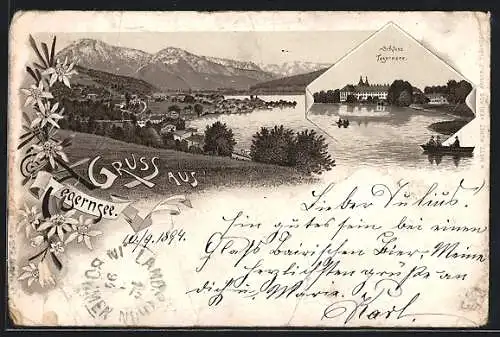 Schloss
Tegernsee.
GRUSS AUS
Tegernsee.
/9. 1894.
Lieber Julius!
Bin gutes sein bei einen
Glass bairischen Bier, Meine
herzlichsten grüße an
dich u. Marie.
Karl.